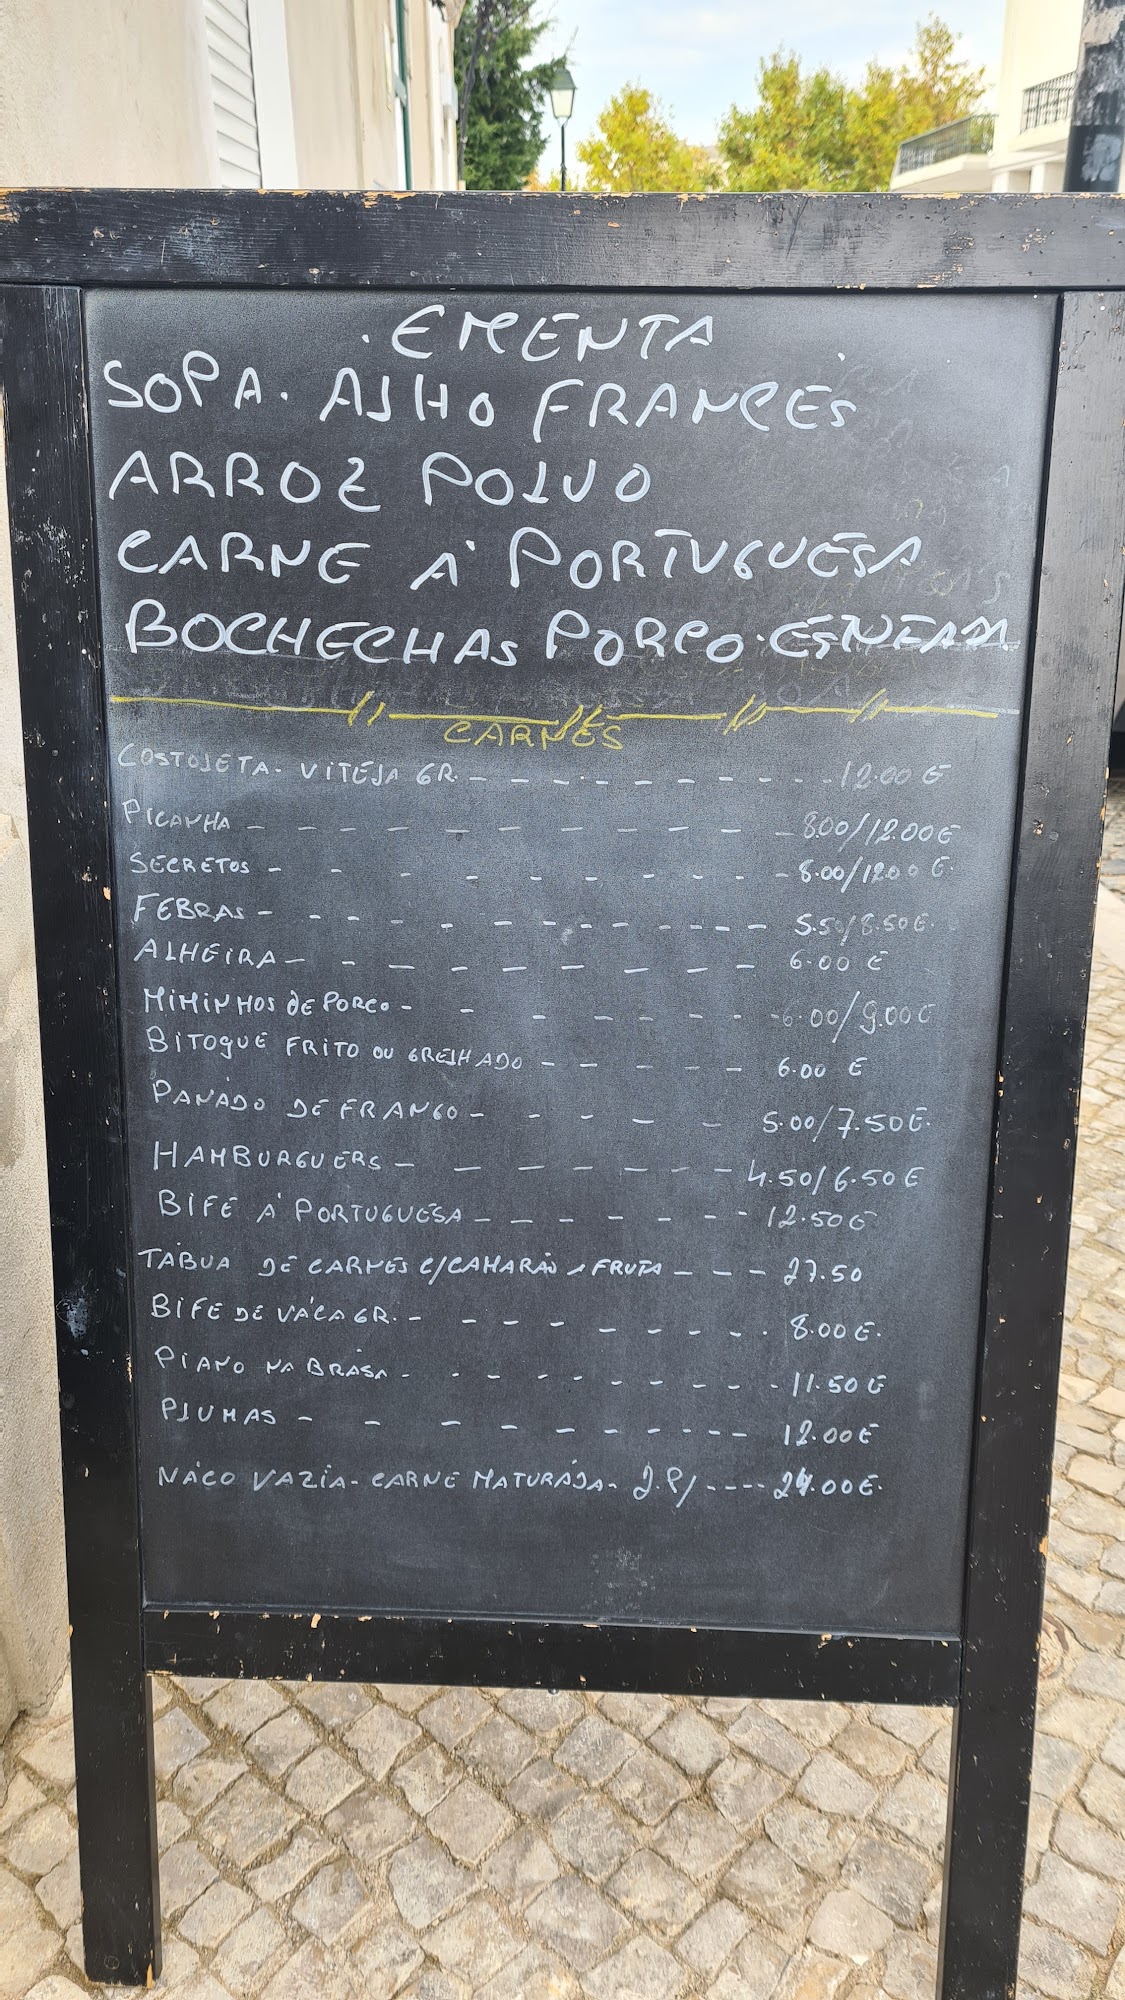 . EMENTA
SOPA. ALHO FRANCÊS
ARROZ POLVO
CARNE À PORTUGUESA
BOCHECHAS PORCO.
CARNES
COSTOLETA. VITELA GR. - - - - - - - - - 12.00 €
PICANHA - - - - - - - - - - 8.00/12.00€
SECRETOS - - - - - - - - - 8.00/12.00 €.
FEBRAS - - - - - - - - - - - - 5.50/8.50€.
ALHEIRA - - - - - - - - - 6.00 €
MIMINHOS DE PORCO - - - - - - - - 6.00/9.00€
BITOQUE FRITO OU GRELHADO - - - - - 6.00 €
PANADO DE FRANGO - - - - - 5.00/7.50€.
HAMBURGUERS - - - - - - - - 4.50/6.50€
BIFE À PORTUGUESA - - - - - - - - 12.50€
TÁBUA DE CARNES C/CAMARÃO FRUTA - - - 27.50
BIFE DE VACA GR. - - - - - - - - - . 8.00€.
PIANO NA BRASA - - - - - - - - - - 11.50€
PLUMAS - - - - - - - - - - 12.00€
NACO VAZIA - CARNE MATURADA - 2.P/ - - - - 24.00€.